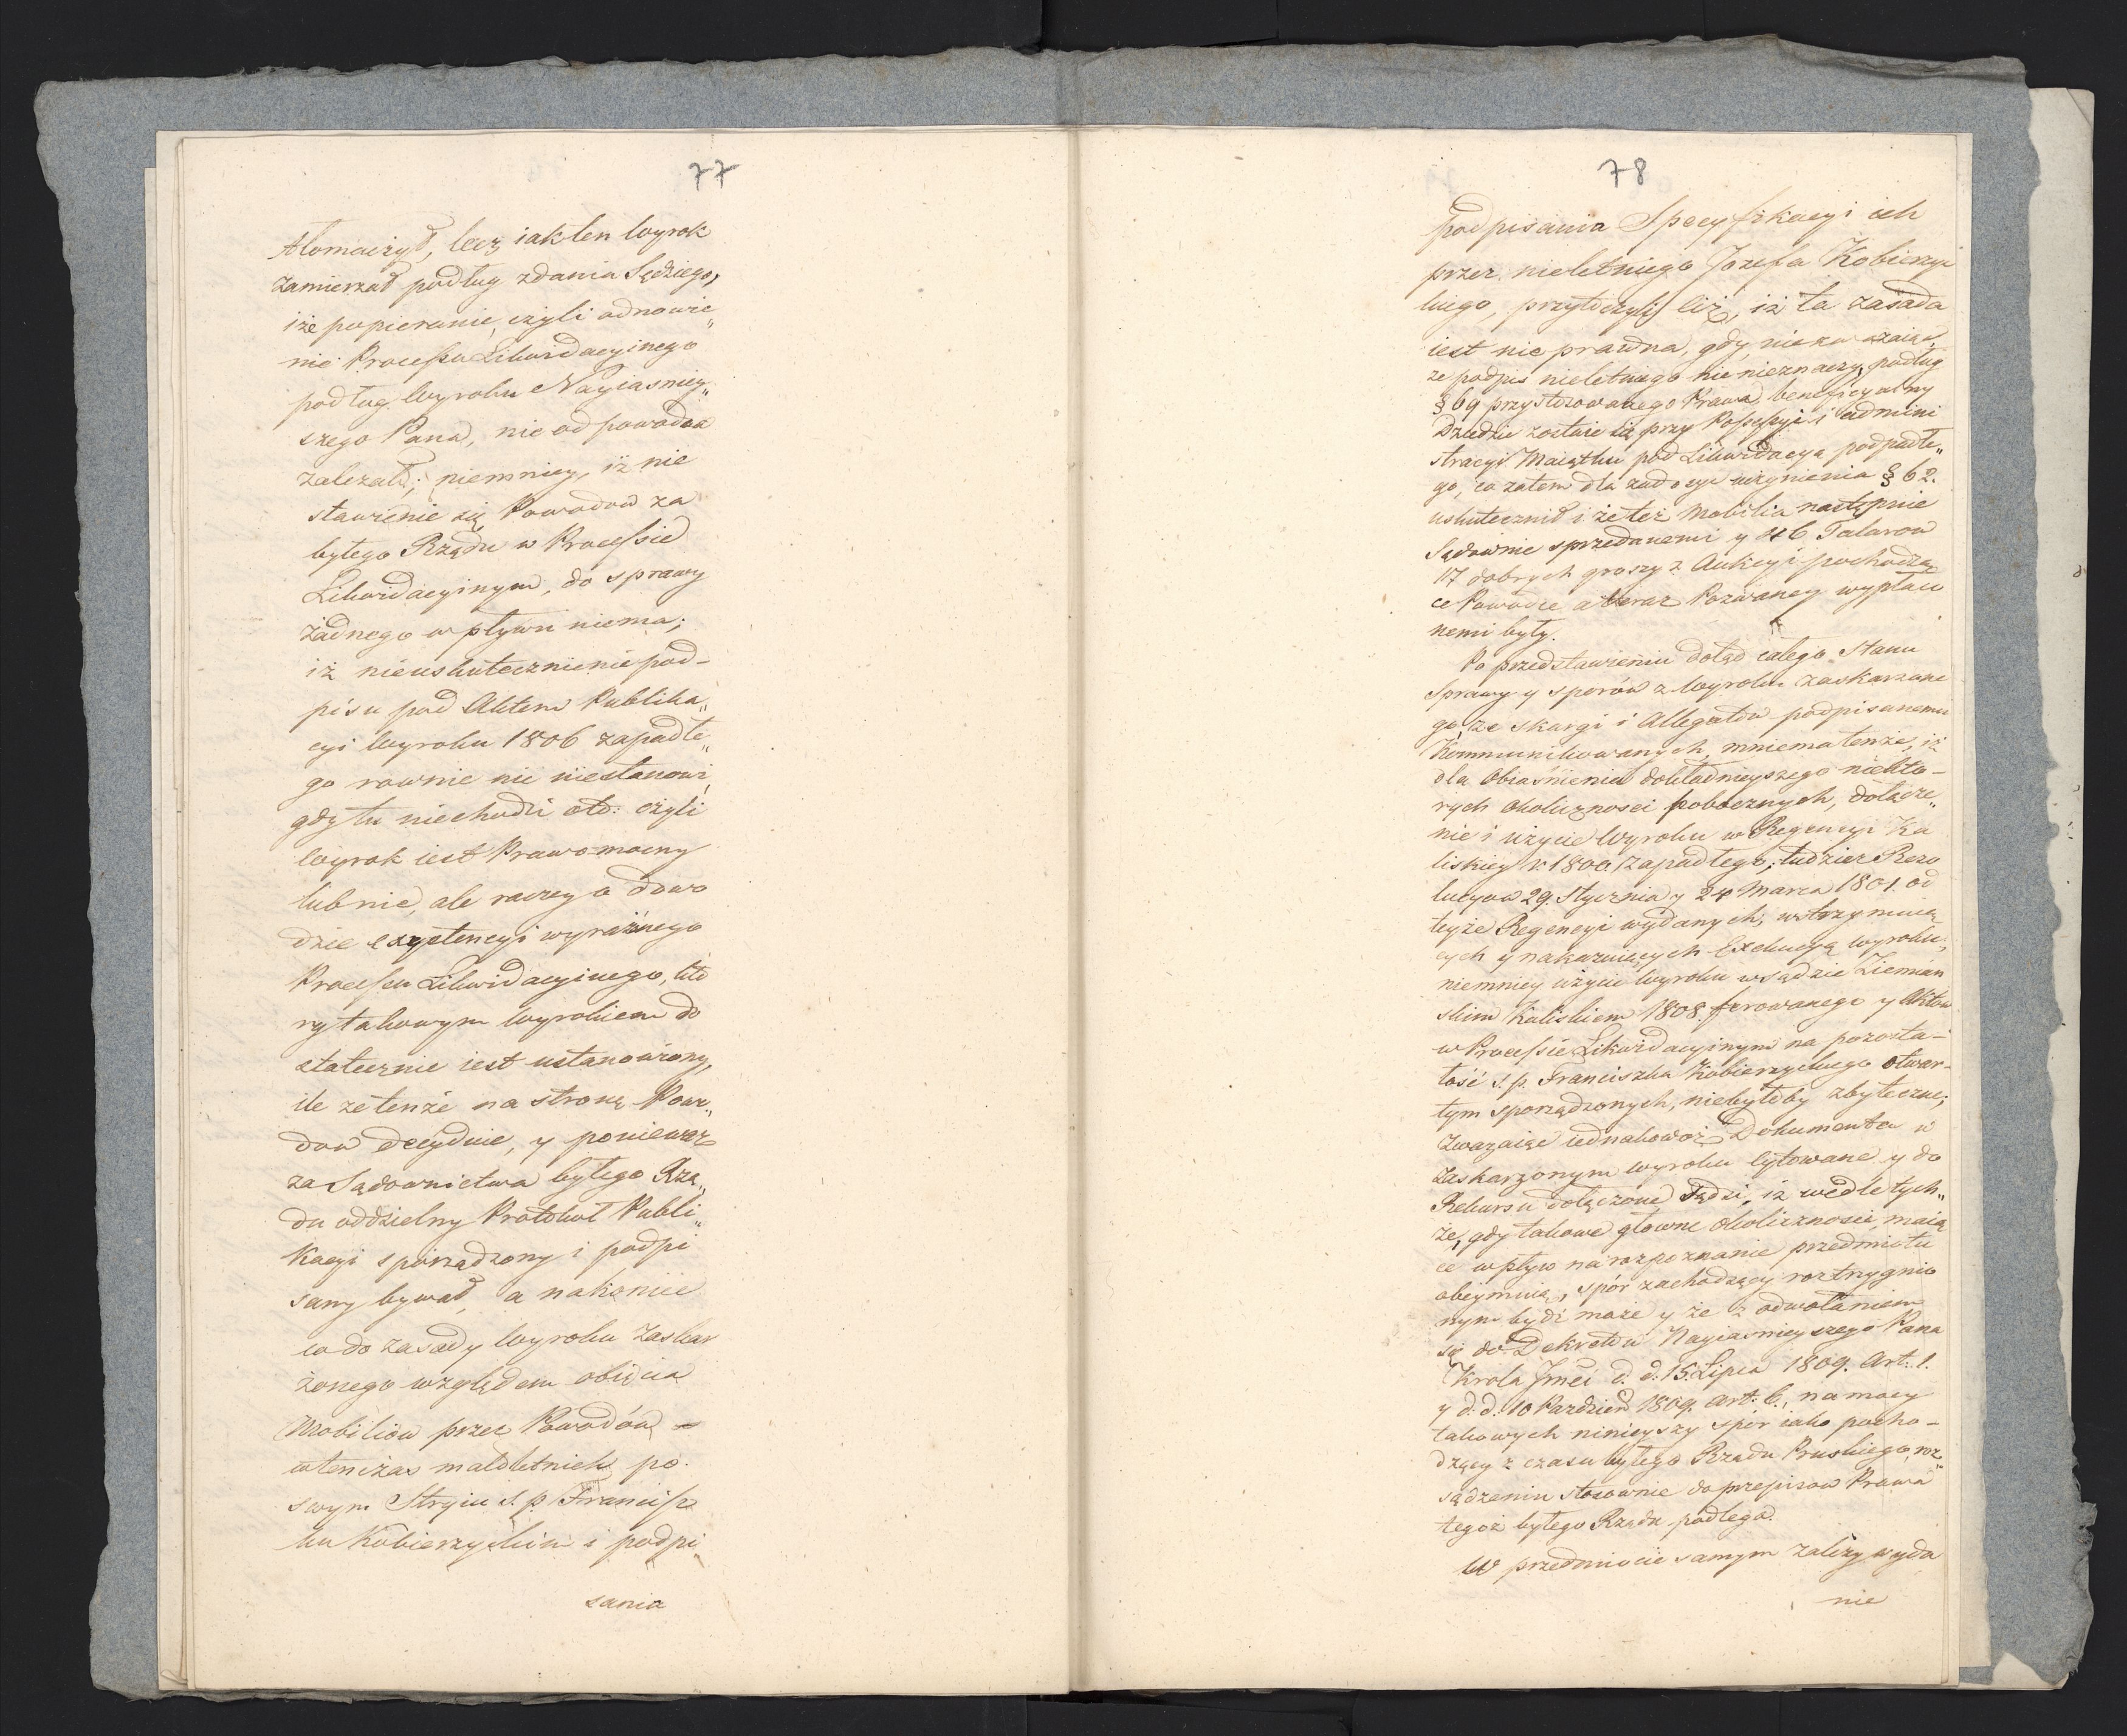 77
tłomaczył, lecz iak ten wyrok
zamierzał podług zdania Sędziego,
iże popieranie, czyli odnowie„
nie Processu Likwidacyinego
podług Wyroku Nayiasniey„
szego Pana, nie od powodow
zalezało; niemniey, iż nie
stawienie się Powodow za
byłego Rządu w Processie
Likwidacyinym, do sprawy
żadnego wpływu niema;
iż nieuskutecznienie pod-
pisu pod Aktem Publika„
cyi Wyroku 1806 zapadłe„
go rownie nic niestanowi,
gdy tu niechodzi oto: czyli
wyrok iest Prawomocny
lub nie, ale raczey o dowo
dzie exystencyi wyraźnego
Processu Likwidacyinego, któ
ry takowym wyrokiem do
statecznie iest ustanowiony,
ile że tenże na stronę Powo„
dow decyduie, y poniewaz
za Sądownictwa byłego Rzą„
du oddzielny Protokuł Publi„
kacyi sporządzony i podpi
sany bywał, a nakoniec
co do zasady Wyroku zaskar
żonego względem obięcia
Mobiliow przez Powodów
wtenczas małoletnich po
swym Stryiu ś. p. Francisz
ku Kobierzyckim i podpi
sania
78
podpisania Specyfikacyi ich
przez nieletniego Jozefa Kobierzyc
kiego, przytoczyli też, iż ta zasada
iest nie prawna, gdy nie zwazaiąc,
ze podpis nieletniego nic nieznaczy, podług
§ 69 przystosowanego Prawa, beneficyalny
Dziedzic zostaie się przy Possessyi i admini
stracyi Maiątku pod Likwidacyą podpadłe„
go, co zatem dla zadosyć uczynienia § 62.
uskutecznił i że też Mobilia następnie
Sądownie sprzedanemi y 46 Talarow
17 dobrych groszy z Aukcyi pochodzą
ce Powodce a teraz Pozwaney wypłaco
nemi były.
Po przedstawieniu dotąd całego Stanu
Sprawy y sporów z Wyroku zaskarzone
go, ze skargi i Allegatow podpisanemu
Kommunikowanych, mniema tenże, iż
dla obiaśnienia dokładnieyszego niekto-
rych okoliczności pobocznych, dołącze„
nie i użycie Wyroku w Regencyi Ka
liskiey r. 1800 zapadłego; tudzież Rezo
lucyow 29. Stycznia y 24 Marca 1801. od
teyże Regencyi wydanych, wstrzymuią
cych y nakazuiących Exekucyą wyroku;
niemniey użycie Wyroku w Sądzie Ziemian
skim Kaliskiem 1808. ferowanego y Aktow
w Processie Likwidacyinym na pozosta-
łość ś. p. Franciszka Kobierzyckiego otwar-
tym sporządzonych, niebyłoby zbyteczne;
zwazaiąc iednakowoż Dokumenta w
zaskarzonym wyroku cytowane y do
Rekursu dołączone, sądzi, iż wedle tych„
że, gdy takowe głowne okoliczności, maią
ce wpływ na rozpoznanie przedmiotu
obeymuią, spór zachodzący roztrzygnio
nym bydź może y że z odwołaniem
się do Dekretów Nayiasnieyszego Pana
Krola Jmci d. d. 15. Lipca 1809. Art. 1.
y d. d. 10 Pazdzier. 1809. Art. 6., na mocy
takowych ninieyszy spor iako pocho-
dzący z czasu byłego Rządu Pruskiego, roz„
sądzeniu stosownie do przepisow Prawa
tegoż byłego Rządu podlega.
W przedmiocie samym zależy wyda
nie